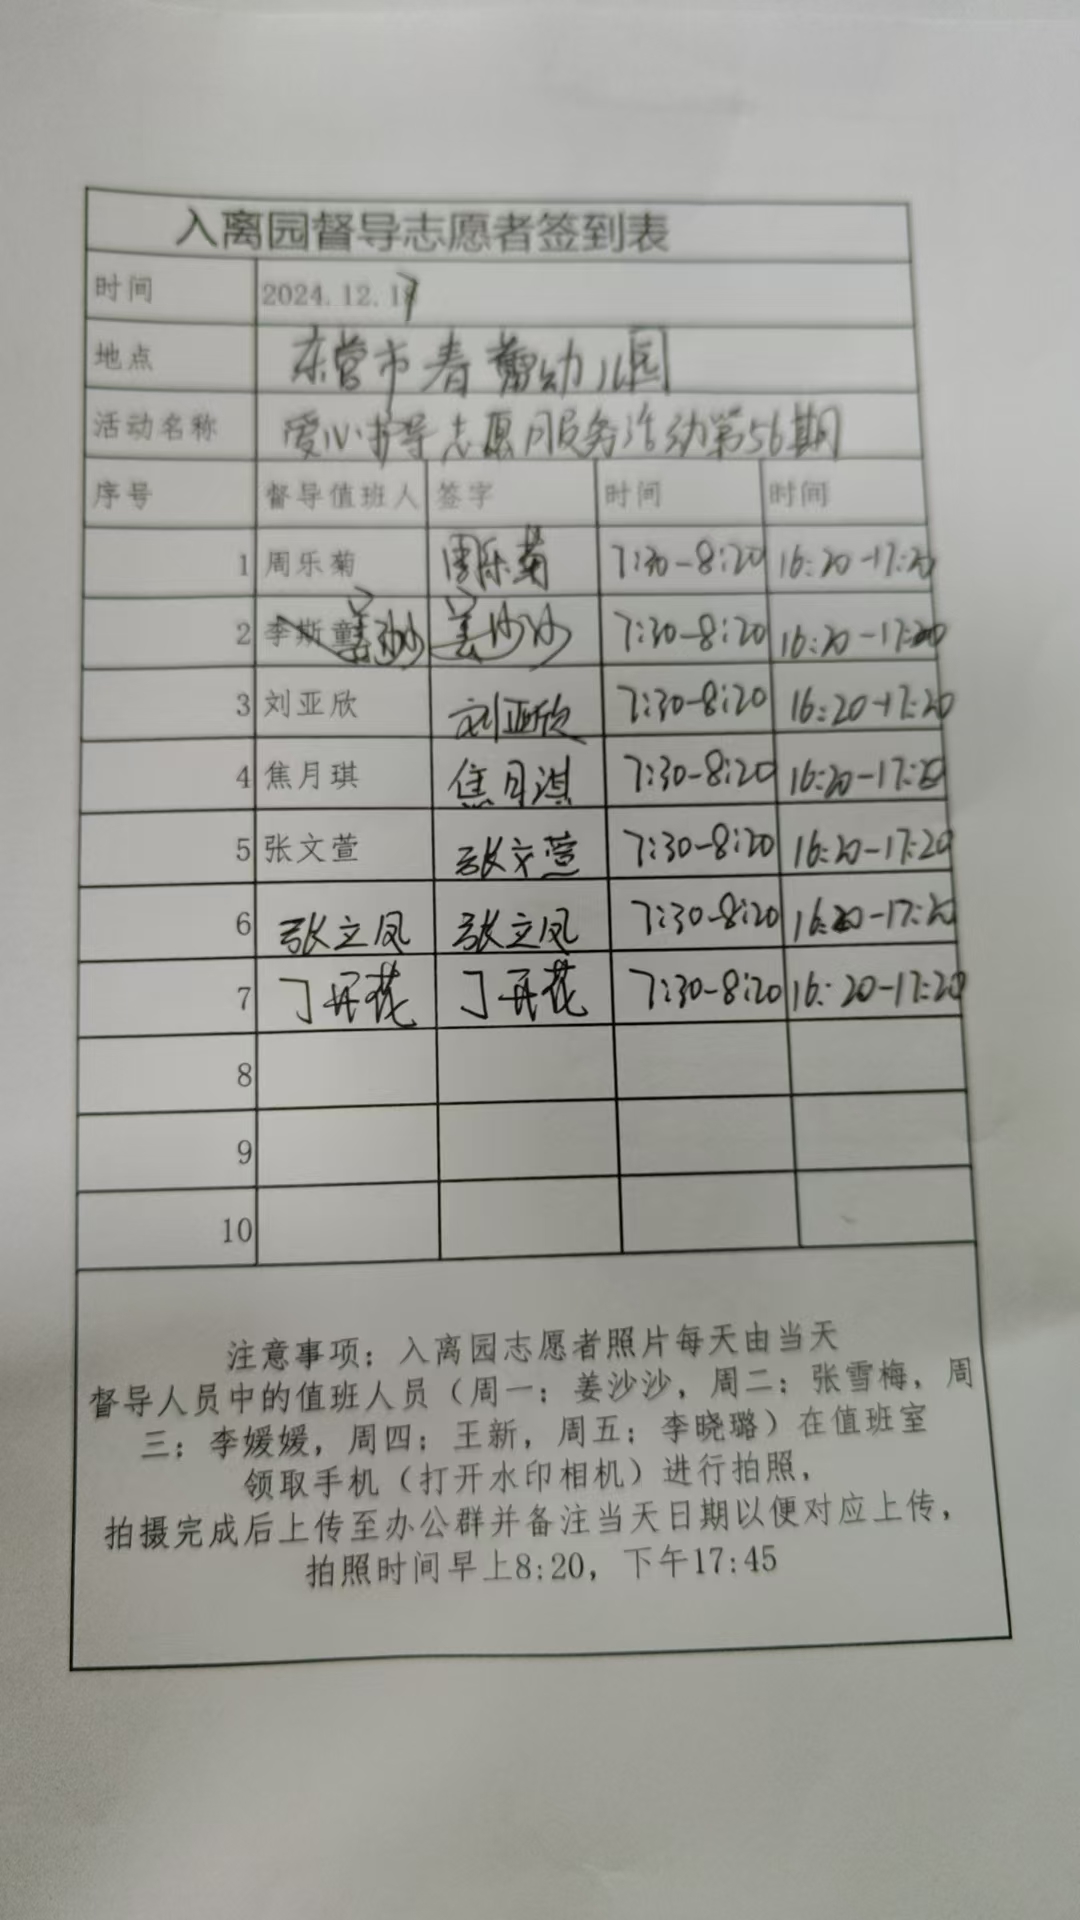 入离园督导志愿者签到表
时间 2024.12.17
地点 东营市春蕾幼儿园
活动名称 爱心护导志愿服务活动第56期
序号 督导值班人 签字 时间 时间
1 周乐菊 周乐菊 7:30-8:20 16:20-17:20
2 李斯童 姜沙沙 姜沙沙 7:30-8:20 16:20-17:20
3 刘亚欣 刘亚欣 7:30-8:20 16:20-17:20
4 焦月琪 焦月淇 7:30-8:20 16:20-17:20
5 张文萱 张文萱 7:30-8:20 16:20-17:20
6 张立凤 张立凤 7:30-8:20 16:20-17:20
7 丁开花 丁开花 7:30-8:20 16:20-17:20
8
9
10
注意事项：入离园志愿者照片每天由当天
督导人员中的值班人员（周一：姜沙沙，周二：张雪梅，周
三：李媛媛，周四：王新，周五：李晓璐）在值班室
领取手机（打开水印相机）进行拍照，
拍摄完成后上传至办公群并备注当天日期以便对应上传，
拍照时间早上8:20，下午17:45